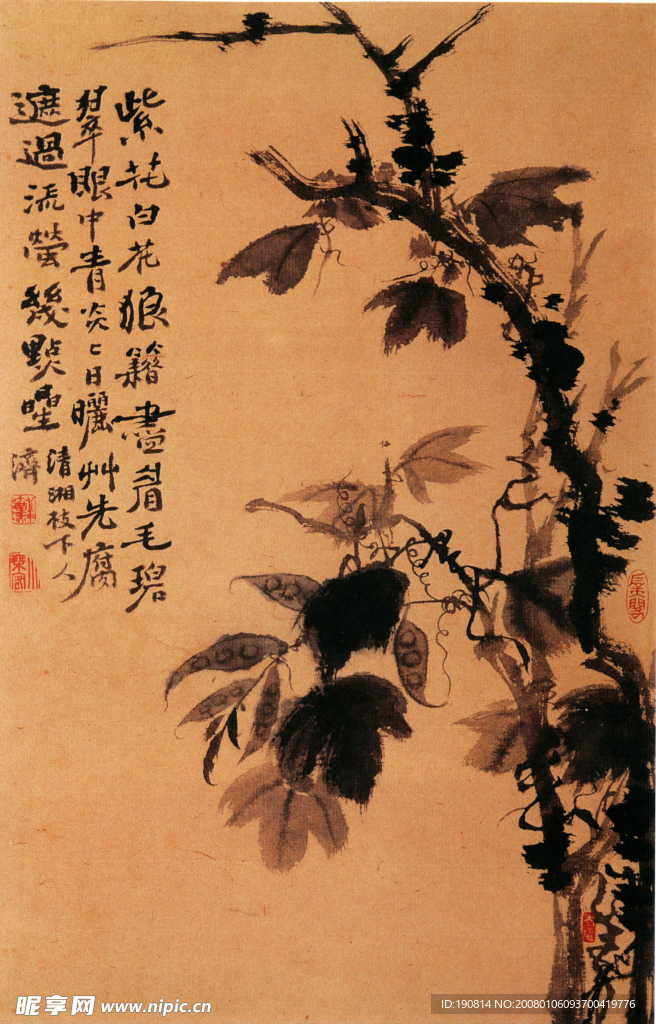 紫花白花狼籍盡眉毛碧
翠眼中青炎〻日曬艸先腐
遮過流螢幾點星
清湘枝下人
濟
昵享网 www.nipic.cn
ID:190814 NO:20080106093700419776